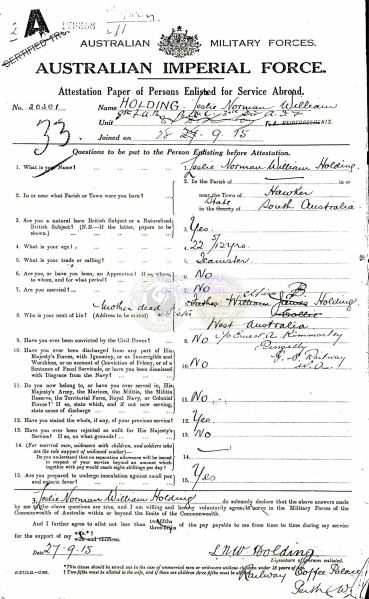 A
AUSTRALIAN MILITARY FORCES.
AUSTRALIAN IMPERIAL FORCE.
Attestation Paper of Persons Enlisted for Service Abroad.
No. 20301 Name HOLDING Leslie Norman William
Unit
Joined on 28 27. 9. 15
33
Questions to be put to the Person Enlisting before Attestation.
1. What is your Name? ... 1. Leslie Norman William Holding.
2. In or near what Parish or Town were you born? ... 2. In the Parish of in or
near the Town of Hawker
in the County of State South Australia
3. Are you a natural born British Subject or a Naturalized British Subject? (N.B.—If the latter, papers to be shown.) 3. Yes.
4. What is your age? ... 4. 22 5/12 yrs.
5. What is your trade or calling? ... 5. Teamster
6. Are you, or have you been, an Apprentice? If so, where, to whom, and for what period? 6. No
7. Are you married? ... 7. No
8. Who is your next of kin? (Address to be stated) Mother dead 8. Father William James Holding
Collie
West Australia
9. Have you ever been convicted by the Civil Power? 9. No
10. Have you ever been discharged from any part of His Majesty's Forces, with Ignominy, or as Incorrigible and Worthless, or on account of Conviction of Felony, or of a Sentence of Penal Servitude, or have you been dismissed with Disgrace from the Navy? 10. No
11. Do you now belong to, or have you ever served in, His Majesty's Army, the Marines, the Militia, the Militia Reserve, the Territorial Force, Royal Navy, or Colonial Forces? If so, state which, and if not now serving, state cause of discharge 11. No
12. Have you stated the whole, if any, of your previous service? 12. Yes
13. Have you ever been rejected as unfit for His Majesty's Service? If so, on what grounds? 13. No
14. (For married men, widowers with children, and soldiers who are the sole support of widowed mother)—
Do you understand that no separation allowance will be issued in respect of your service beyond an amount which together with pay would reach eight shillings per day? 14. —
15. Are you prepared to undergo inoculation against small pox and enteric fever? 15. Yes
I, Leslie Norman William Holding do solemnly declare that the above answers made
by me to the above questions are true, and I am willing and hereby voluntarily agree to serve in the Military Forces of the
Commonwealth of Australia within or beyond the limits of the Commonwealth.
And I further agree to allot not less than two-fifths three-fifths of the pay payable to me from time to time during my service
for the support of my wife wife and children.
Date 27. 9. 15 L.N.W Holding
Signature of person enlisted.
Railway Coffee Palace
Perth